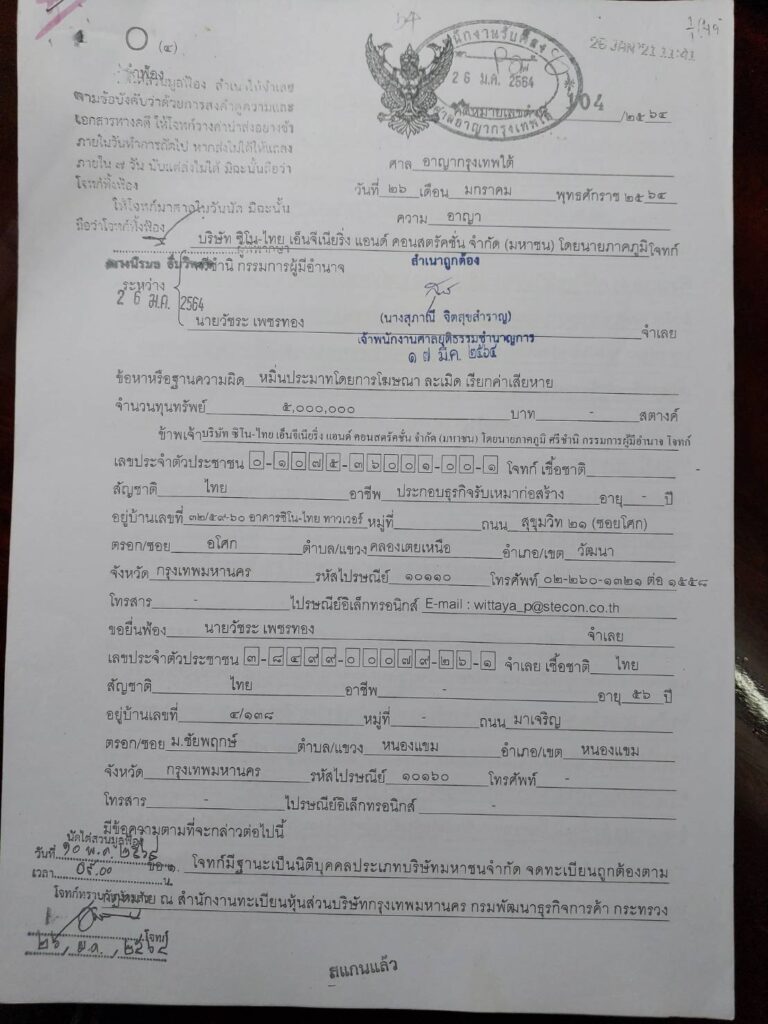 ○ (๔)
คำฟ้อง
26 JAN '21 11:41
สำนักงานรับฟ้อง
2 6 ม.ค. 2564
ศาลอาญากรุงเทพใต้
คดีหมายเลขดำที่ 104 /๒๕๖๔
สำเนาให้จำเลย
ตามข้อบังคับว่าด้วยการส่งคำคู่ความและ
เอกสารทางคดี ให้โจทก์วางค่านำส่งอย่างช้า
ภายในวันทำการถัดไป หากส่งไม่ได้ให้แถลง
ภายใน ๗ วัน นับแต่ส่งไม่ได้ มิฉะนั้นถือว่า
โจทก์ทิ้งฟ้อง
ให้โจทก์มาศาลในวันนัด มิฉะนั้น
ถือว่าโจทก์ทิ้งฟ้อง
ศาล อาญากรุงเทพใต้
วันที่ ๒๖ เดือน มกราคม พุทธศักราช ๒๕๖๔
ความ อาญา
บริษัท ซิโน-ไทย เอ็นจีเนียริ่ง แอนด์ คอนสตรัคชั่น จำกัด (มหาชน) โดยนายภาคภูมิ โจทก์
ศรีชำนิ กรรมการผู้มีอำนาจ
ระหว่าง
2 6 ม.ค. 2564
สำเนาถูกต้อง
(นางสุภาณี จิตสุขสำราญ)
เจ้าพนักงานศาลยุติธรรมชำนาญการ
๑๗ มี.ค. ๒๕๖๔
นายวัชระ เพชรทอง จำเลย
ข้อหาหรือฐานความผิด หมิ่นประมาทโดยการโฆษณา ละเมิด เรียกค่าเสียหาย
จำนวนทุนทรัพย์ ๕,๐๐๐,๐๐๐ บาท - สตางค์
ข้าพเจ้า บริษัท ซิโน-ไทย เอ็นจีเนียริ่ง แอนด์ คอนสตรัคชั่น จำกัด (มหาชน) โดยนายภาคภูมิ ศรีชำนิ กรรมการผู้มีอำนาจ โจทก์
เลขประจำตัวประชาชน ๐-๑๐๗๕-๓๖๐๐๑-๐๐-๑ โจทก์ เชื้อชาติ -
สัญชาติ ไทย อาชีพ ประกอบธุรกิจรับเหมาก่อสร้าง อายุ - ปี
อยู่บ้านเลขที่ ๓๒/๕๙-๖๐ อาคารซิโน-ไทย ทาวเวอร์ หมู่ที่ ถนน สุขุมวิท ๒๑ (ซอยโศก)
ตรอก/ซอย อโศก ตำบล/แขวง คลองเตยเหนือ อำเภอ/เขต วัฒนา
จังหวัด กรุงเทพมหานคร รหัสไปรษณีย์ ๑๐๑๑๐ โทรศัพท์ ๐๒-๒๖๐-๑๓๒๑ ต่อ ๑๕๕๘
โทรสาร - ไปรษณีย์อิเล็กทรอนิกส์ E-mail : wittaya_p@stecon.co.th
ขอยื่นฟ้อง นายวัชระ เพชรทอง จำเลย
เลขประจำตัวประชาชน ๓-๘๔๙๙-๐๐๐๗๙-๒๖-๑ จำเลย เชื้อชาติ ไทย
สัญชาติ ไทย อาชีพ - อายุ ๕๖ ปี
อยู่บ้านเลขที่ ๔/๑๓๘ หมู่ที่ - ถนน มาเจริญ
ตรอก/ซอย ม.ชัยพฤกษ์ ตำบล/แขวง หนองแขม อำเภอ/เขต หนองแขม
จังหวัด กรุงเทพมหานคร รหัสไปรษณีย์ ๑๐๑๖๐ โทรศัพท์ -
โทรสาร - ไปรษณีย์อิเล็กทรอนิกส์ -
มีข้อความตามที่จะกล่าวต่อไปนี้
นัดไต่สวนมูลฟ้อง
วันที่ ๑๐ พ.ค. ๒๕๖๔
เวลา ๐๙.๐๐ น.
ข้อ ๑. โจทก์มีฐานะเป็นนิติบุคคลประเภทบริษัทมหาชนจำกัด จดทะเบียนถูกต้องตาม
โจทก์ทราบ
กฎหมาย ณ สำนักงานทะเบียนหุ้นส่วนบริษัทกรุงเทพมหานคร กรมพัฒนาธุรกิจการค้า กระทรวง
โจทก์
๒๖ / ม.ค. / ๒๕๖๔
สแกนแล้ว